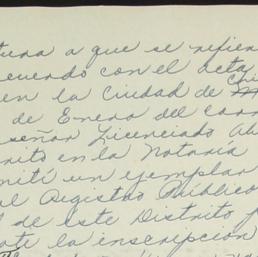 tura a que se refiere
cuerdo con el acta
en la Ciudad de Chi
de Enero del
señor Licenciado
rito en la Notaría
mití un ejemplar
al Registro Público
l de este Distrito
te la inscripcion